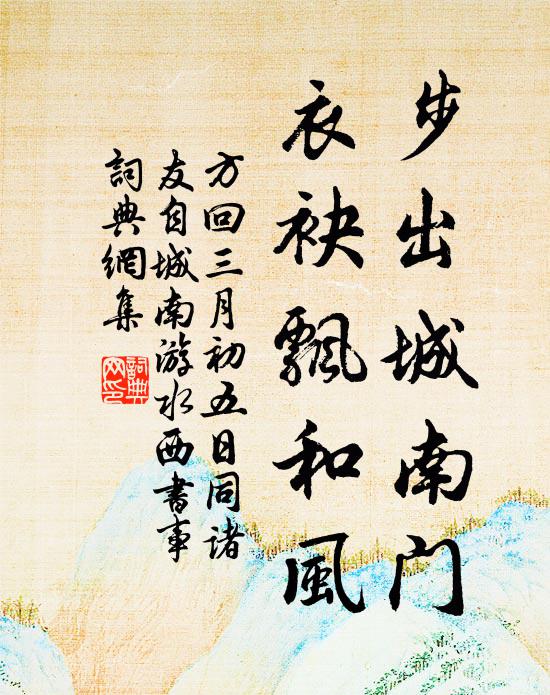 步出城南门
衣袂飘和風
方回三月初五日同诸
友自城南游水西書事
詞典網集
詞典
网印